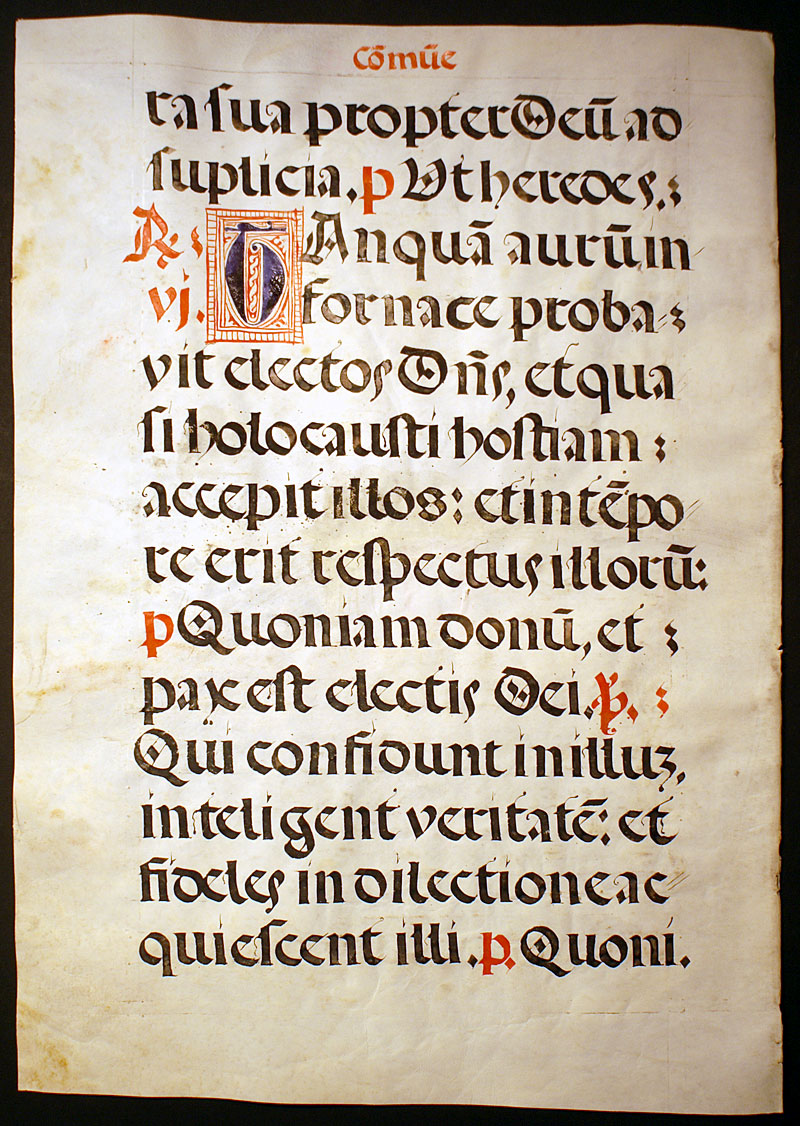 Cōmūe
ra sua propter Deū ad
suplicia. p Ut heredes.
R. TAnquā aurū in
vj. fornace proba-
vit electos Dñs, et qua
si holocausti hostiam
accepit illos: et in tēpo
re erit respectus illorū:
p Quoniam donū, et
pax est electis Dei. V.
Qui confidunt in illuz,
inteligent veritatē: et
fideles in dilectione ac
quiescent illi. p. Quoni.